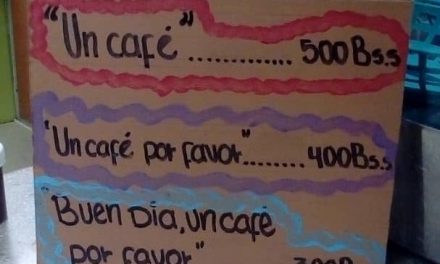 "Un café"............. 500Bs.s
"Un café por favor"........400Bs.s
"Buen Día, un café
por favor" 300Bs.s